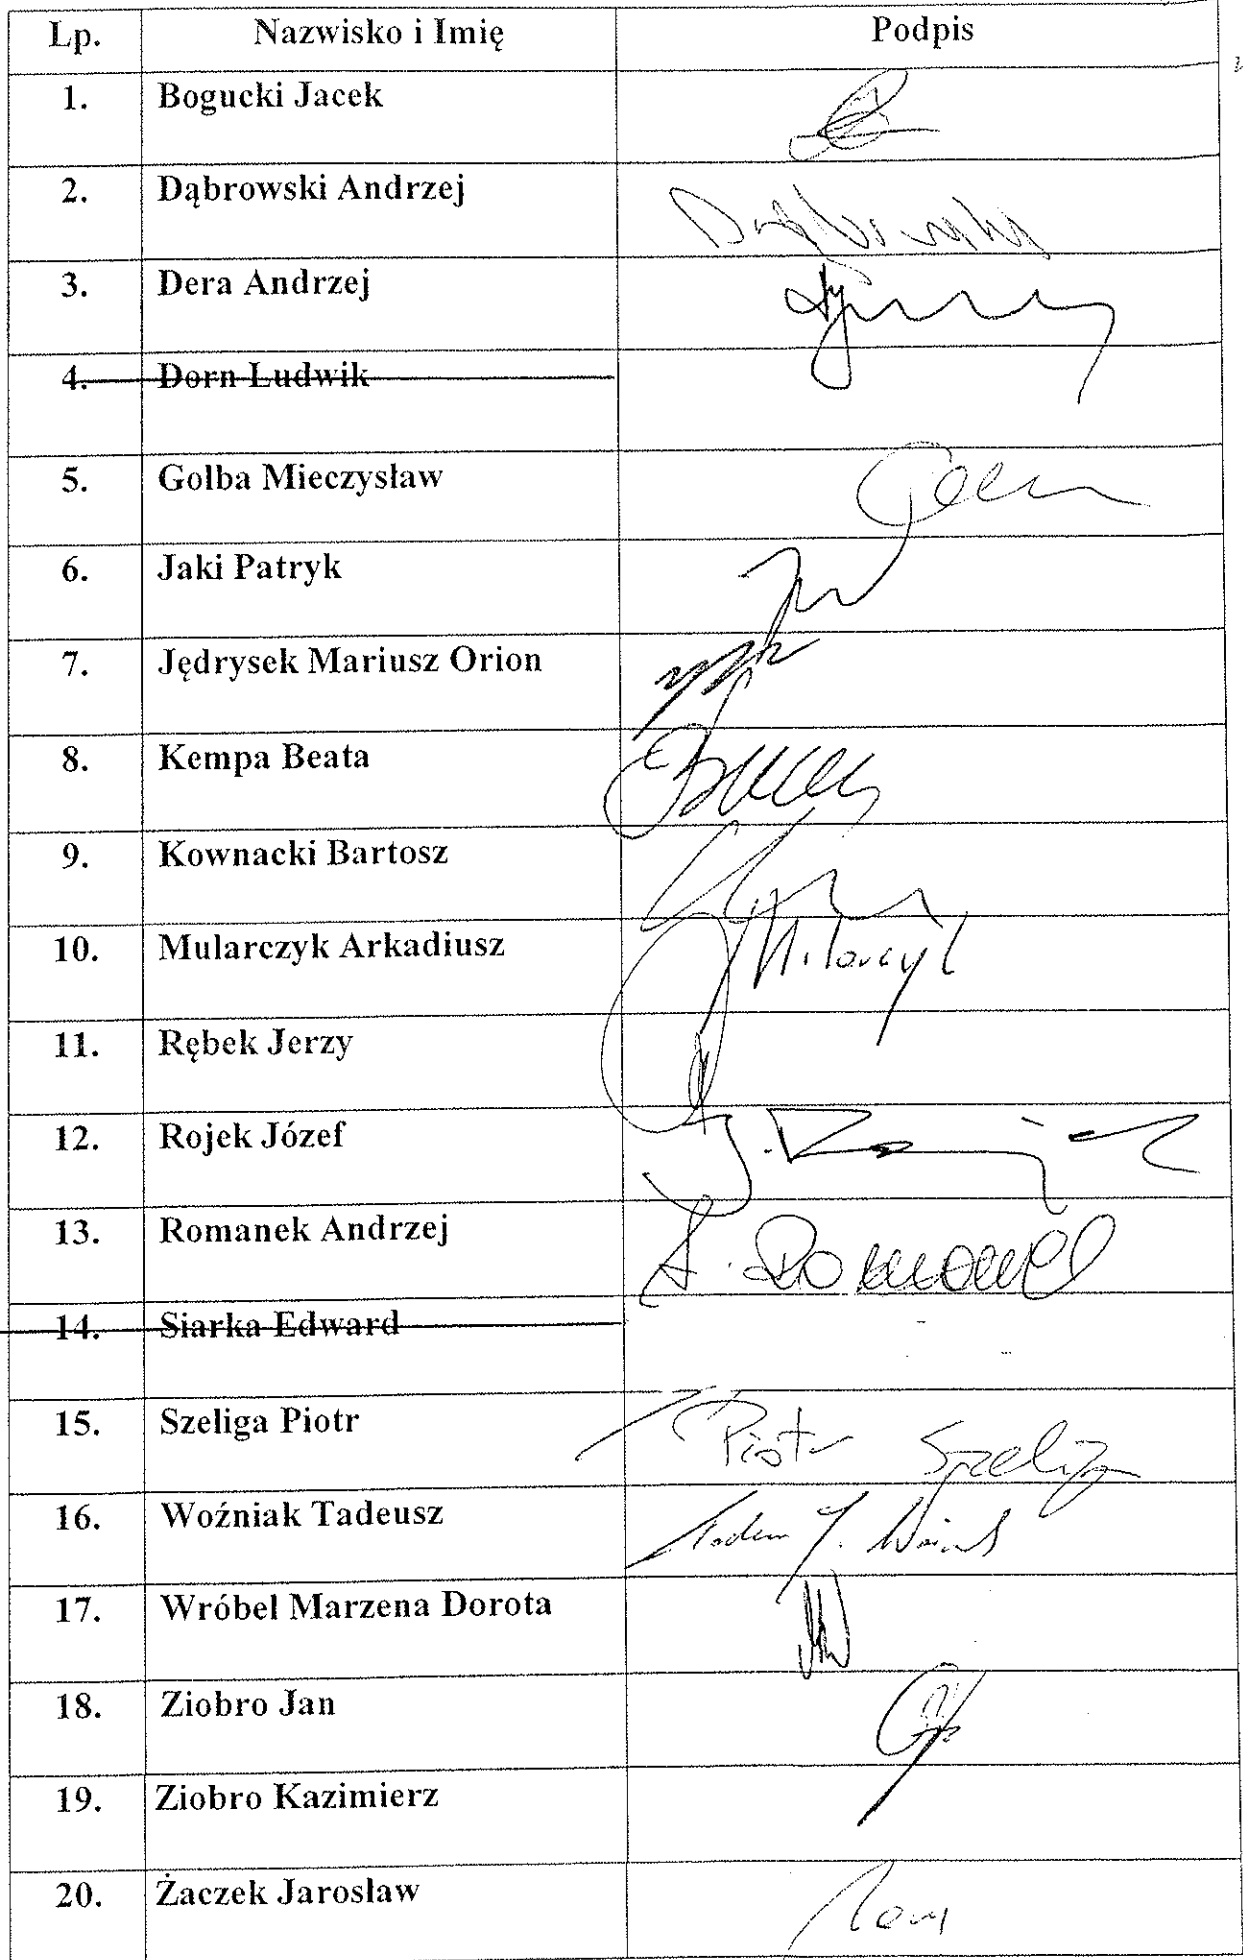 Lp. Nazwisko i Imię Podpis
1. Bogucki Jacek
2. Dąbrowski Andrzej
3. Dera Andrzej
4. Dorn Ludwik
5. Golba Mieczysław
6. Jaki Patryk
7. Jędrysek Mariusz Orion
8. Kempa Beata
9. Kownacki Bartosz
10. Mularczyk Arkadiusz
11. Rębek Jerzy
12. Rojek Józef
13. Romanek Andrzej A. Romanek
14. Siarka Edward
15. Szeliga Piotr Piotr Szeliga
16. Woźniak Tadeusz
17. Wróbel Marzena Dorota
18. Ziobro Jan
19. Ziobro Kazimierz
20. Żaczek Jarosław